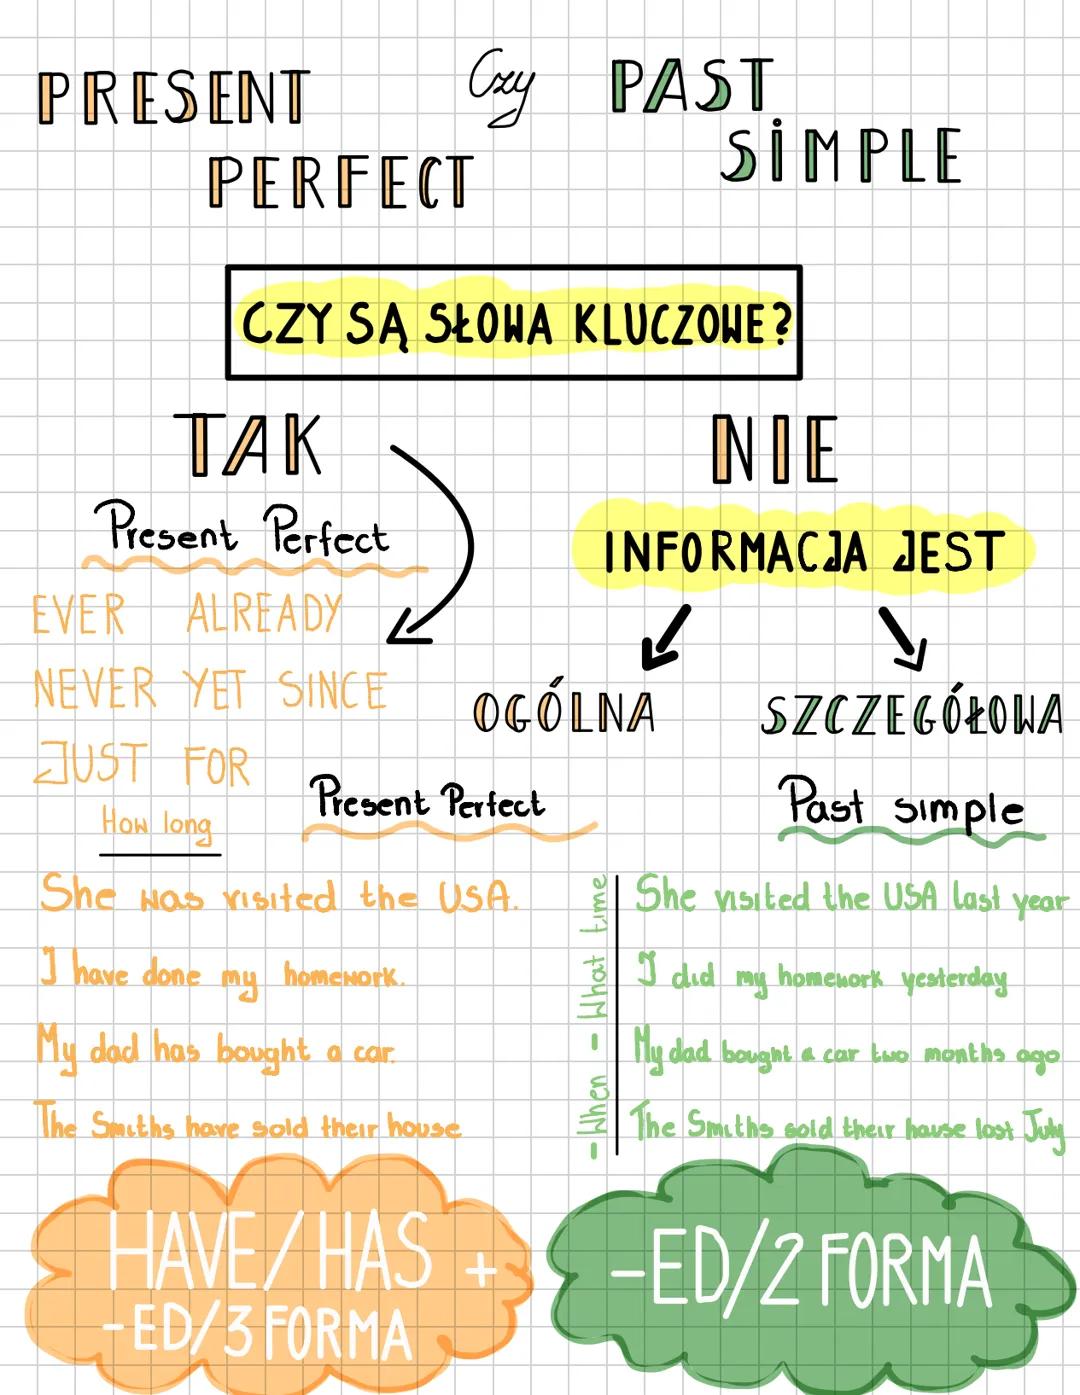 PRESENT
PERFECT
Czy
PAST
SIMPLE
CZY SĄ SŁOWA KLUCZOWE?
TAK
Present Perfect
EVER ALREADY
NEVER YET SINCE
JUST FOR
How long
NIE
INFORMACJA JEST
OGÓLNA
SZCZEGÓŁOWA
Present Perfect
Past simple
She was visited the USA.
I have done my homework.
My dad has bought a car.
The Smiths have sold their house
- When - What time
She visited the USA last year
I did my homework yesterday
My dad bought a car two months ago
The Smiths sold their house last July
HAVE/HAS +
-ED/3 FORMA
-ED/2 FORMA